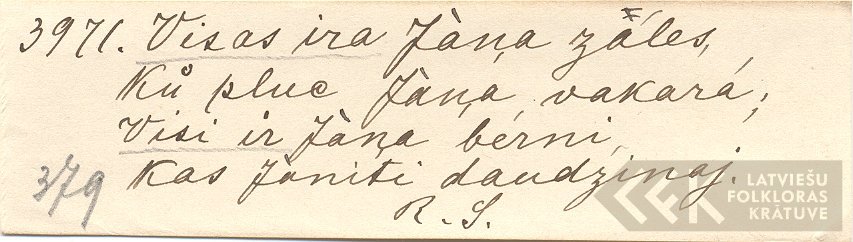 3971. Visas ira Jàņa zâles,
Ků pluc Jàņa vakará;
Visi ir Jàņa bérni
379 Kas Jàníti daudzinaj.
R. S.
LATVIEŠU
FOLKLORAS
KRĀTUVE